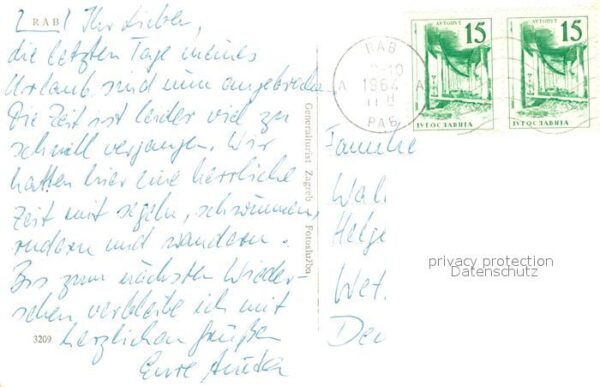 RAB
Ihr Lieben,
die letzten Tage meines
Urlaub sind nun angebrochen.
Die Zeit ist leider viel zu
schnell vergangen. Wir
hatten hier eine herrliche
Zeit mit segeln, schwimmen,
rudern und wandern.
Bis zum nächsten Wieder-
sehen verbleibe ich mit
herzlichen Grüßen
Eure
3209
Generalturist Zagreb Fotoslužba
RAB
1964
РАБ
A A
15
ЈУГОСЛАВИЈА
15
ЈУГОСЛАВИЈА
Familie
Wal
Helge
Wet.
privacy protection
Datenschutz